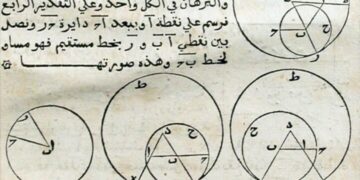 والبرهان في الكل واحد وعلي التقدير الرابع
فرسم علي نقطة آ وببعد آج دايرة جر ونصل
بين نقطي آ ب و ر بخط مستقيم فهو مساو
لخط بج وهذه صورتها
ط
ط
ح
ح
د
د
ا
ب
ب
ج
ر
ب